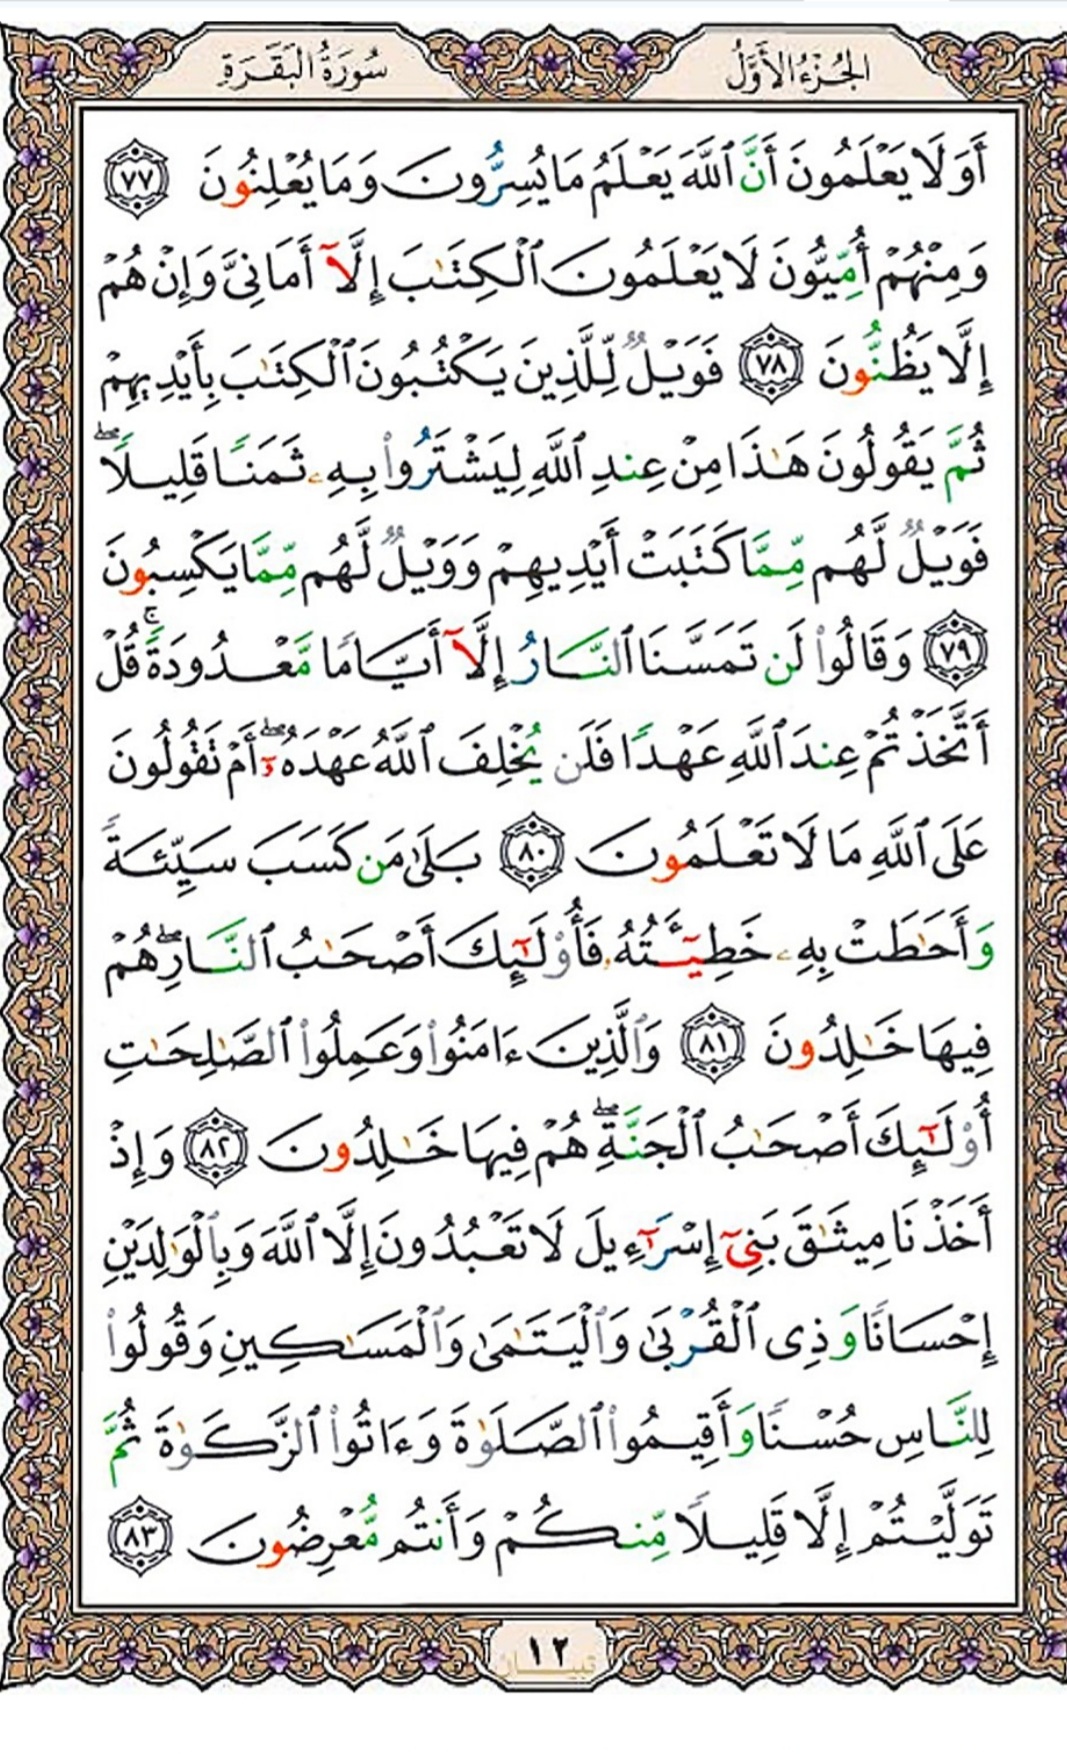 الجُزْءُ الأَوَّلُ
سُورَةُ البَقَرَةِ
أَوَلَا يَعْلَمُونَ أَنَّ ٱللَّهَ يَعْلَمُ مَا يُسِرُّونَ وَمَا يُعْلِنُونَ ٧٧
وَمِنْهُمْ أُمِّيُّونَ لَا يَعْلَمُونَ ٱلْكِتَٰبَ إِلَّآ أَمَانِىَّ وَإِنْ هُمْ
إِلَّا يَظُنُّونَ ٧٨ فَوَيْلٌ لِّلَّذِينَ يَكْتُبُونَ ٱلْكِتَٰبَ بِأَيْدِيهِمْ
ثُمَّ يَقُولُونَ هَٰذَا مِنْ عِندِ ٱللَّهِ لِيَشْتَرُوا۟ بِهِۦ ثَمَنًا قَلِيلًا ۖ
فَوَيْلٌ لَّهُم مِّمَّا كَتَبَتْ أَيْدِيهِمْ وَوَيْلٌ لَّهُم مِّمَّا يَكْسِبُونَ
٧٩ وَقَالُوا۟ لَن تَمَسَّنَا ٱلنَّارُ إِلَّآ أَيَّامًا مَّعْدُودَةً ۚ قُلْ
أَتَّخَذْتُمْ عِندَ ٱللَّهِ عَهْدًا فَلَن يُخْلِفَ ٱللَّهُ عَهْدَهُۥٓ ۖ أَمْ تَقُولُونَ
عَلَى ٱللَّهِ مَا لَا تَعْلَمُونَ ٨٠ بَلَىٰ مَن كَسَبَ سَيِّئَةً
وَأَحَٰطَتْ بِهِۦ خَطِيٓـَٔتُهُۥ فَأُو۟لَٰٓئِكَ أَصْحَٰبُ ٱلنَّارِ ۖ هُمْ
فِيهَا خَٰلِدُونَ ٨١ وَٱلَّذِينَ ءَامَنُوا۟ وَعَمِلُوا۟ ٱلصَّٰلِحَٰتِ
أُو۟لَٰٓئِكَ أَصْحَٰبُ ٱلْجَنَّةِ ۖ هُمْ فِيهَا خَٰلِدُونَ ٨٢ وَإِذْ
أَخَذْنَا مِيثَٰقَ بَنِىٓ إِسْرَٰٓءِيلَ لَا تَعْبُدُونَ إِلَّا ٱللَّهَ وَبِٱلْوَٰلِدَيْنِ
إِحْسَانًا وَذِى ٱلْقُرْبَىٰ وَٱلْيَتَٰمَىٰ وَٱلْمَسَٰكِينِ وَقُولُوا۟
لِلنَّاسِ حُسْنًا وَأَقِيمُوا۟ ٱلصَّلَوٰةَ وَءَاتُوا۟ ٱلزَّكَوٰةَ ثُمَّ
تَوَلَّيْتُمْ إِلَّا قَلِيلًا مِّنكُمْ وَأَنتُم مُّعْرِضُونَ ٨٣
١٢
تبيان